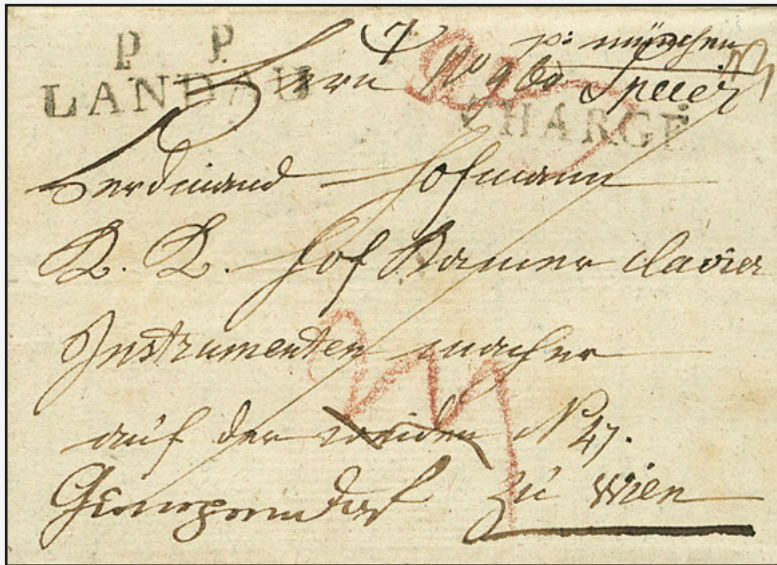 P. P.
LANDAU
p: münchen
Herrn No 960. Speier
CHARGE
Ferdinand Hofmann
K. K. Hof Kamer Clavier
Instrumenten macher
auf der weiden No 47.
Gumpendorf zu Wien